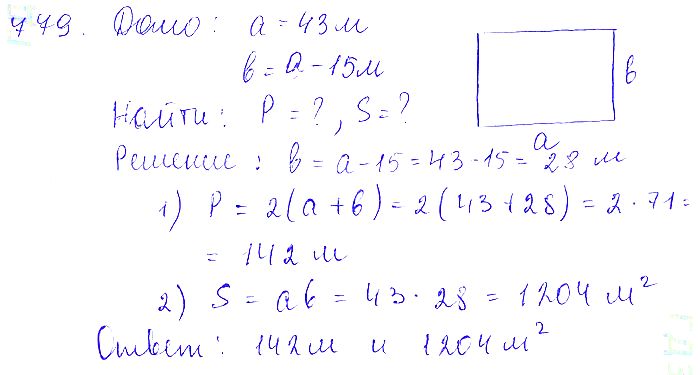 779. Дано: a = 43 м
b = a - 15 м
Найти: P = ?, S = ?
b
a
Решение: b = a - 15 = 43 - 15 = 28 м
1) P = 2(a + b) = 2(43 + 28) = 2 · 71 =
= 142 м
2) S = ab = 43 · 28 = 1204 м²
Ответ: 142 м и 1204 м²